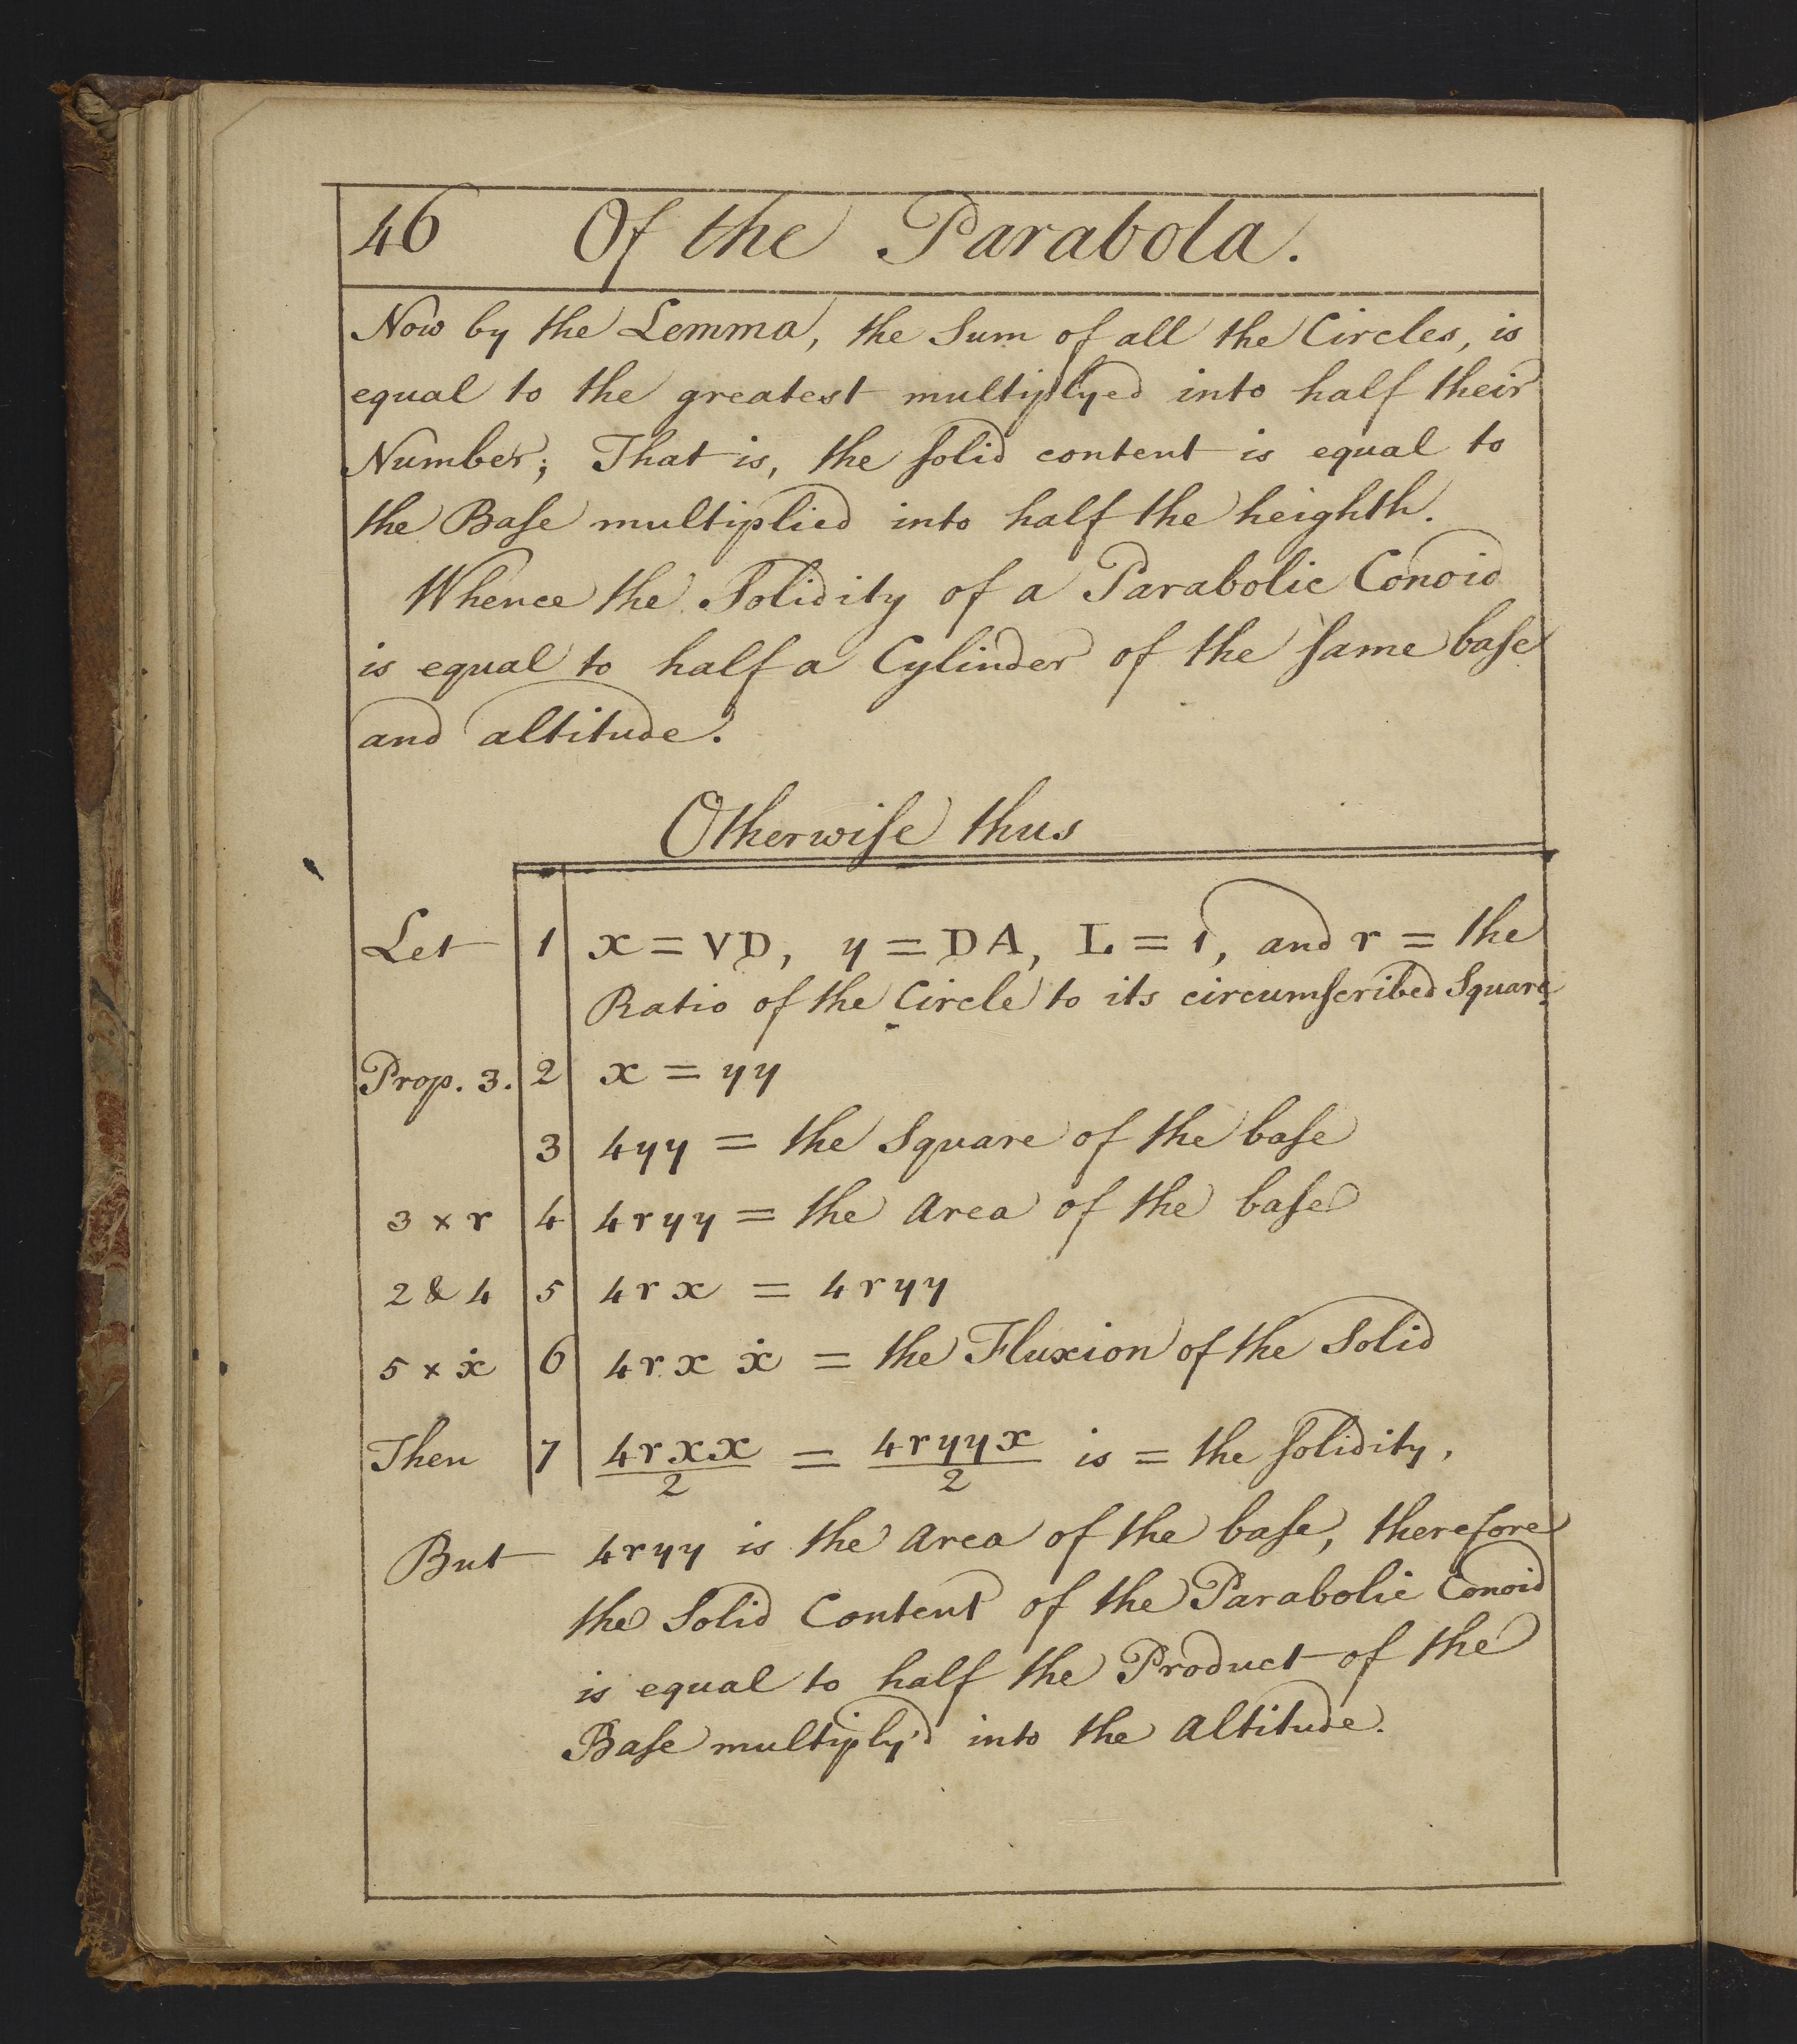 46 Of the Parabola.
Now by the Lemma, the Sum of all the Circles, is
equal to the greatest multiplyed into half their
Number; That is, the ſolid content is equal to
the Baſe multiplied into half the heighth.
Whence the Solidity of a Parabolic Conoid
is equal to half a Cylinder of the ſame baſe
and altitude.
Otherwiſe thus
Let 1 x = VD, y = DA, L = 1, and r = the
Ratio of the Circle to its circumſcribed Square.
Prop. 3. 2 x = yy
3 4yy = the Square of the baſe
3 × r 4 4ryy = the area of the baſe
2 & 4 5 4rx = 4ryy
5 × ẋ 6 4rx ẋ = the Fluxion of the Solid
Then 7 4rxx/2 = 4ryyx/2 is = the ſolidity,
But 4ryy is the area of the baſe, therefore
the Solid Content of the Parabolic Conoid
is equal to half the Product of the
Baſe multiply'd into the altitude.